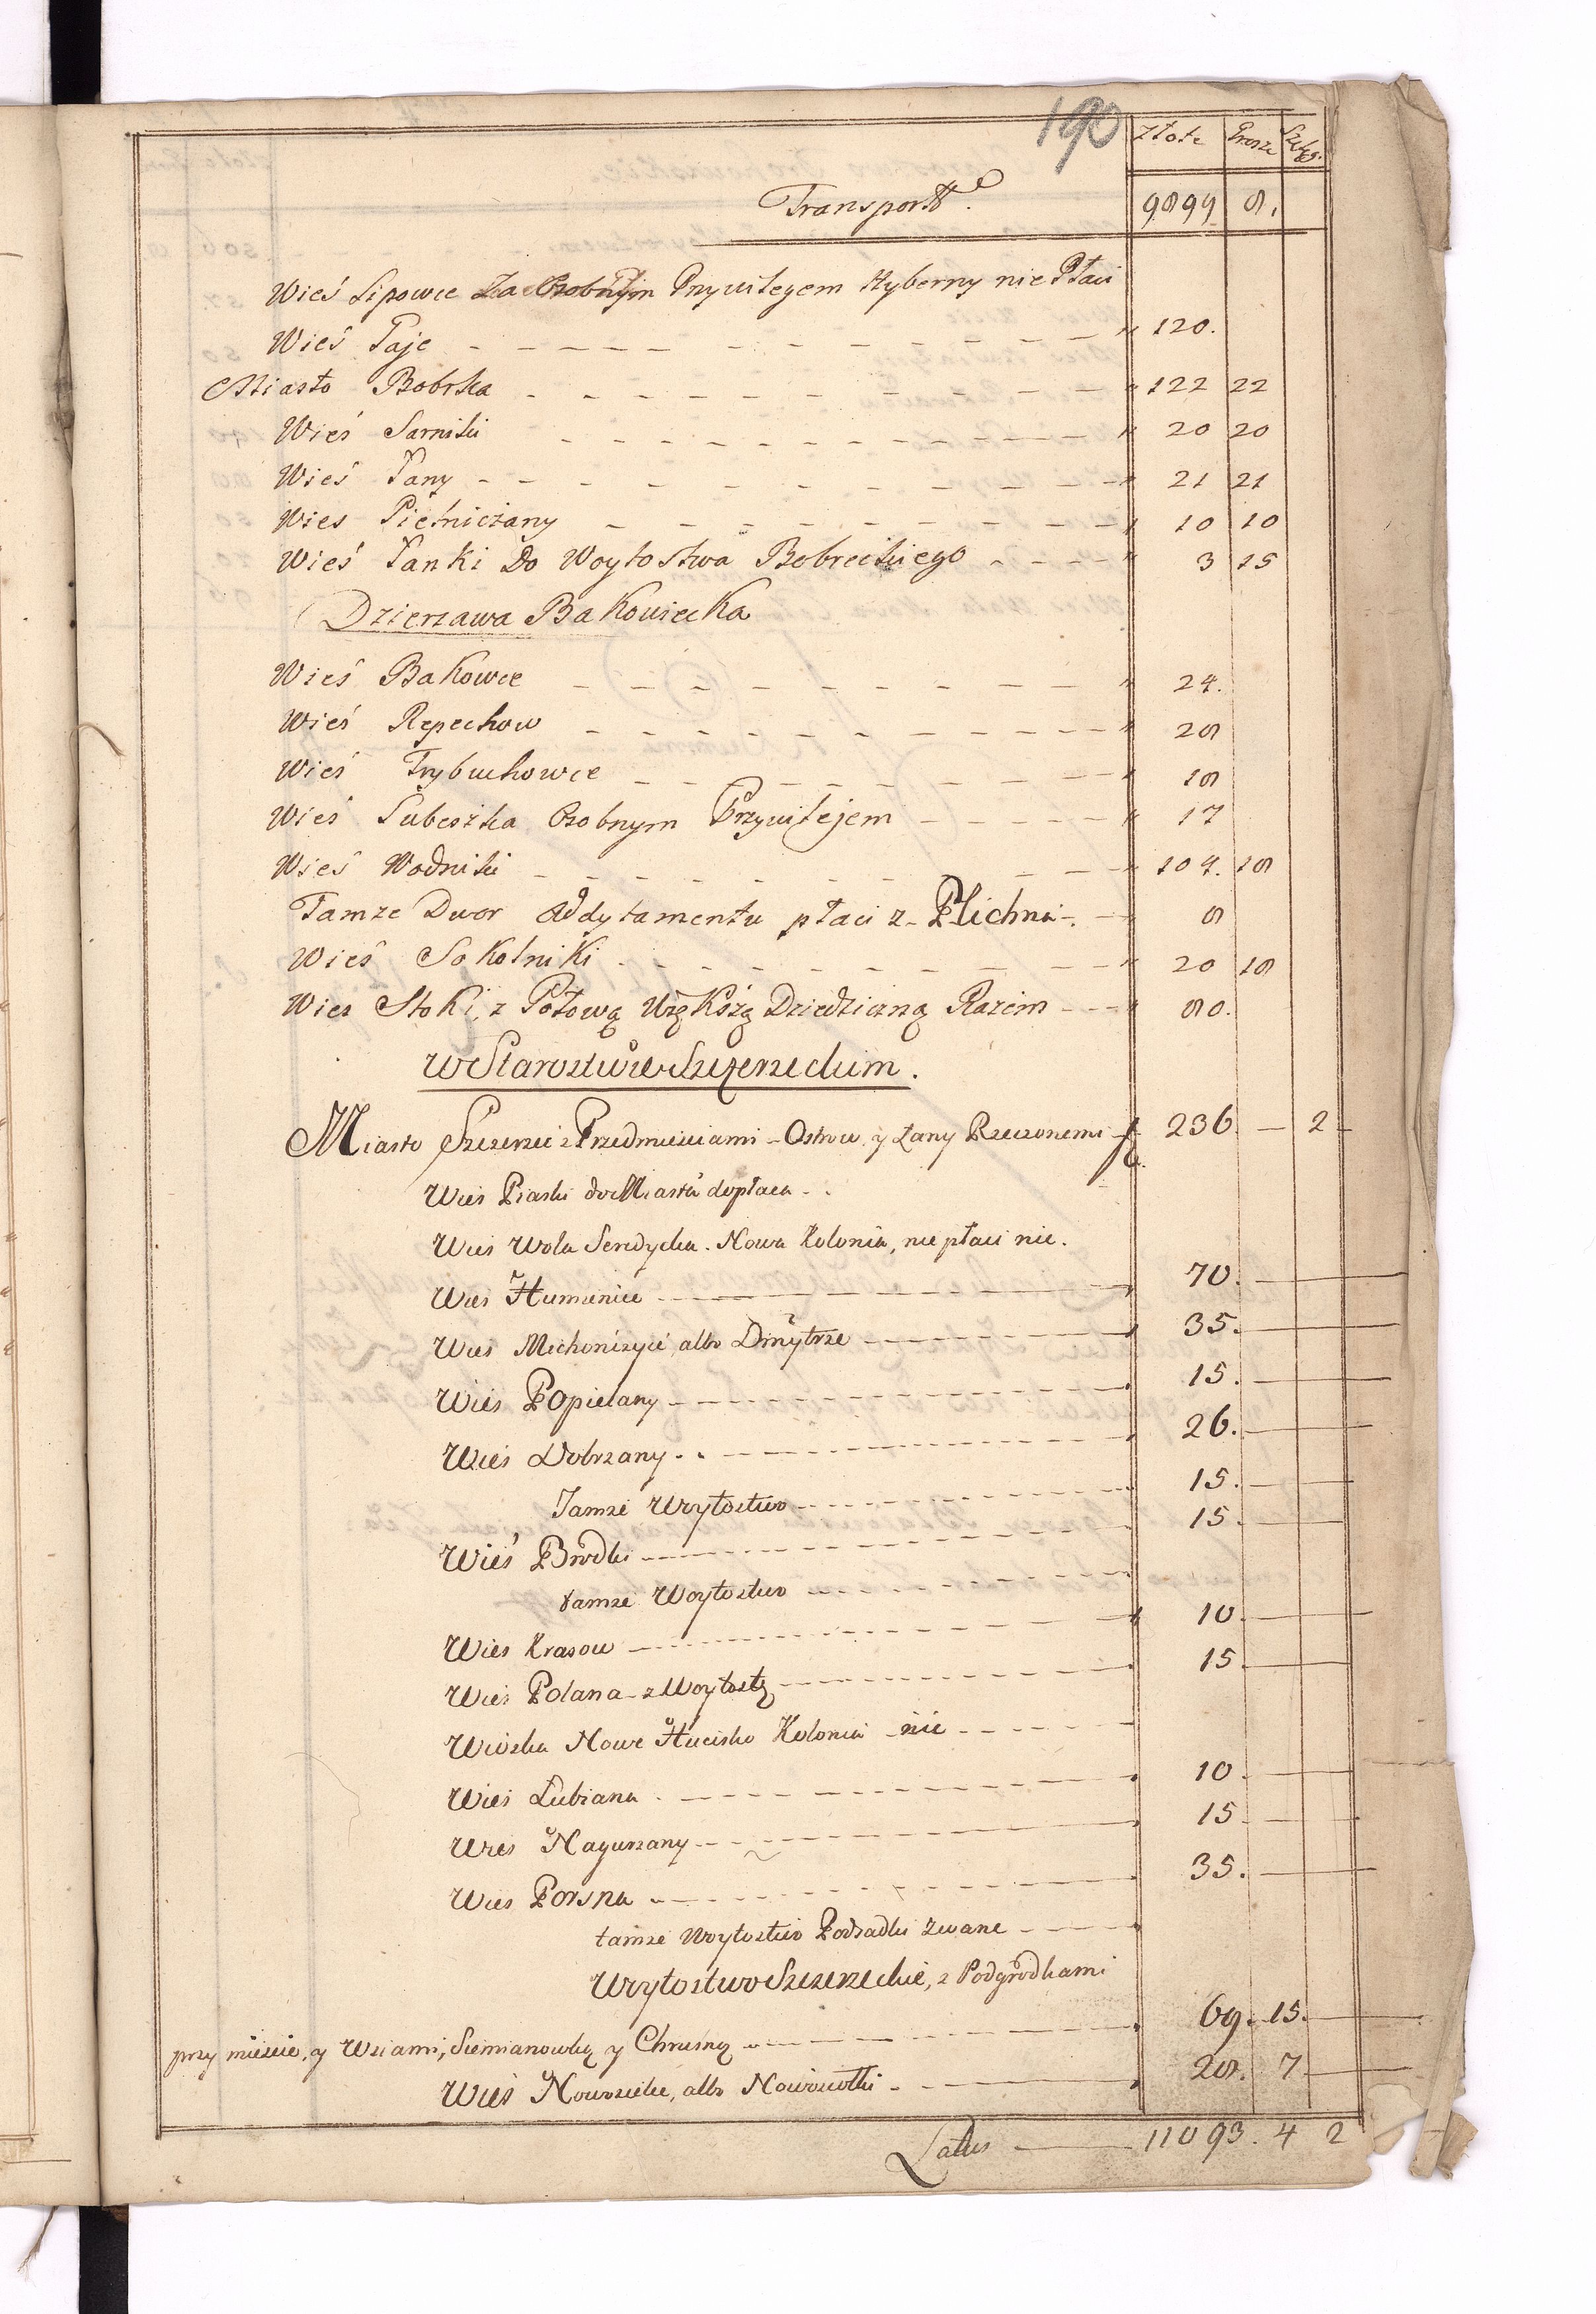 190
Złote Grosze Szeląg.
Transport. 9899 8.
Wieś Lipowce Za Osobnym Przywileyem Hyberny nie Płaci
Wieś Paje 120.
Miasto Bobrka 122 22
Wieś Sarniki 20 20
Wieś Łany 21 21
Wies Pietniczany 10 10
Wieś Łanki Do Woytostwa Bobreckiego 3 15
Dzierzawa Bakowiecka
Wieś Bakowce 24.
Wieś Repechow 28
Wieś Trybuchowce 18
Wieś Lubeszka Osobnym Przywilejem 17
Wieś Wodniki 104. 18
Tamze Dwor Addytamentu płaci z Plichni 8
Wieś Sokolniki 20 18
Wies Stoki, z Połową Większą Dziedziczną Razem 80.
w Starostwie Szczerzeckim.
Miasto Szczerzec z Przedmieściami - Ostrow y Łany Rzeczonemi 236. 2
Wieś Piaski do Miasta dopłaca
Wieś Wola Serdycka. Nowa Kolonia, nie płaci nic.
Wieś Humieniec 70.
Wieś Michonizyce, albo Dmytrze 35.
Wieś Popielany 15.
Wieś Dobrzany 26.
Tamze Woytostwo 15.
Wieś Brodki 15.
tamze Woytostwo
Wies Krasow 10.
Wieś Polana z Woytostą 15
Wioska Nowe Hucisko Kolonia nic
Wieś Lubiana 10.
Wies Nagurzany 15
Wies Porsna 35.
tamze Woytostwo Podsadki zwane
Woytostwo Szczerzeckie, z Podgrodkami
przy mieście, y Wsiami, Siemianowką y Chrusną 69. 15.
Wieś Nowosielce, albo Nowosiołki 28. 7
Latus 11093. 4 2